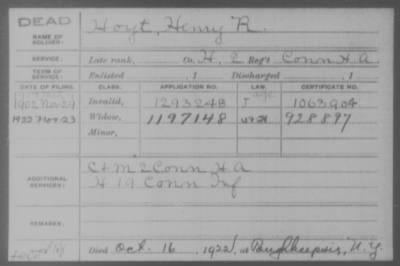 DEAD
NAME OF SOLDIER: Hoyt, Henry R.
SERVICE: Late rank, Co. H, 2 Reg't Conn H.A.
TERM OF SERVICE: Enlisted , 1 Discharged , 1
DATE OF FILING. CLASS. APPLICATION NO. LAW. CERTIFICATE NO.
1902 Nov 29 Invalid, 1293248 J 1063904
1922 Nov 23 Widow, 1197148 928897
Minor,
ADDITIONAL SERVICES: C & M 2 Conn H A
H 19 Conn Inf
REMARKS:
Died Oct. 16, 1922, at Poughkeepsie, N.Y.